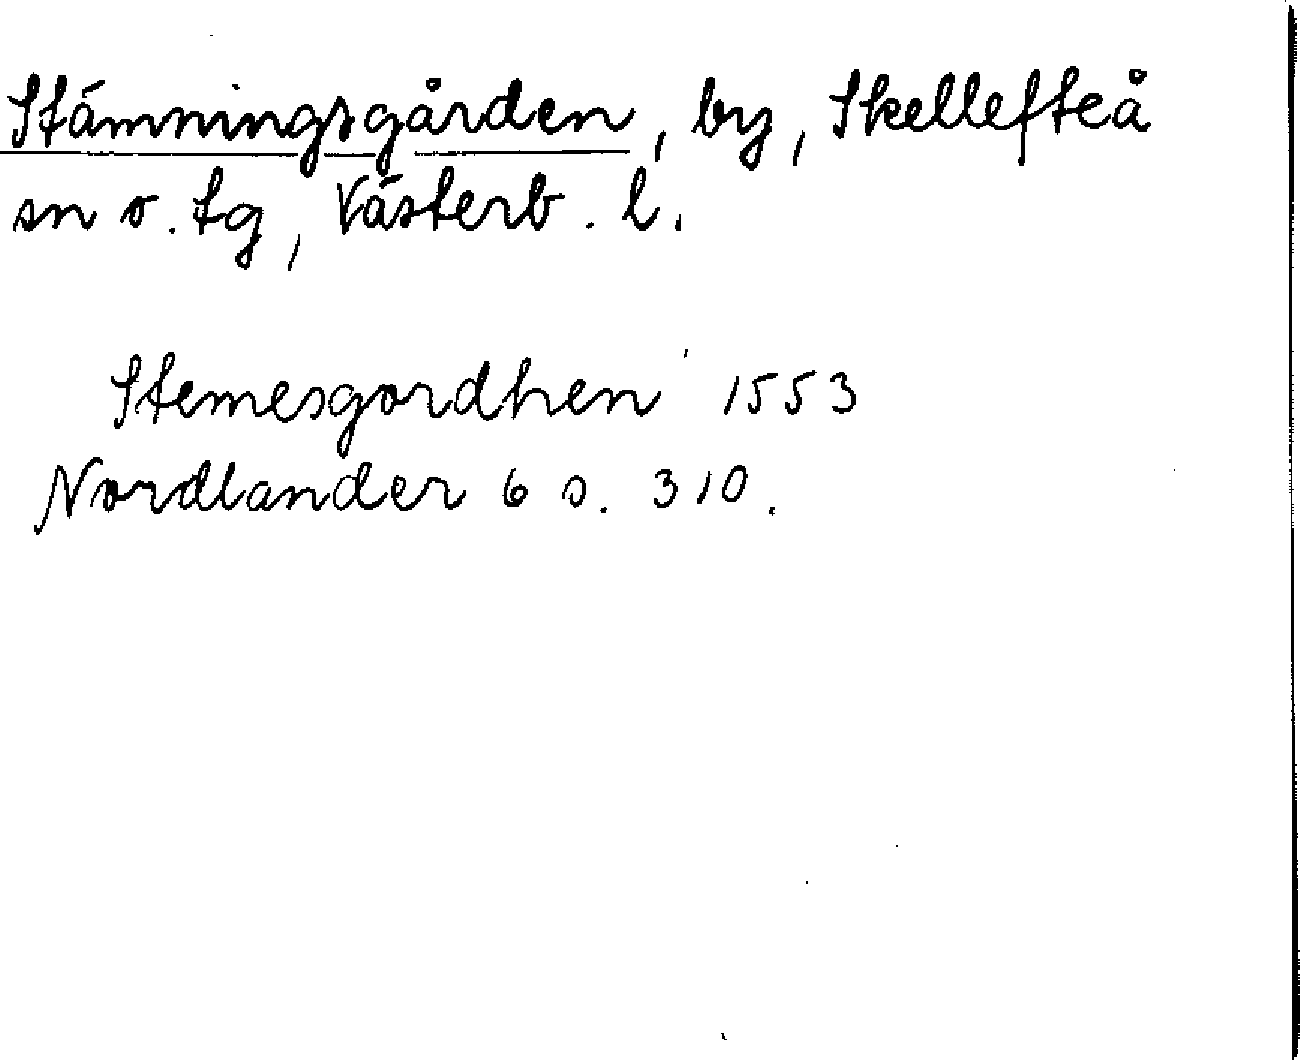 Stämningsgården, by, Skellefteå
sn o. tg, Västerb. l.
Stemesgordhen 1553
Nordlander 6 s. 310.